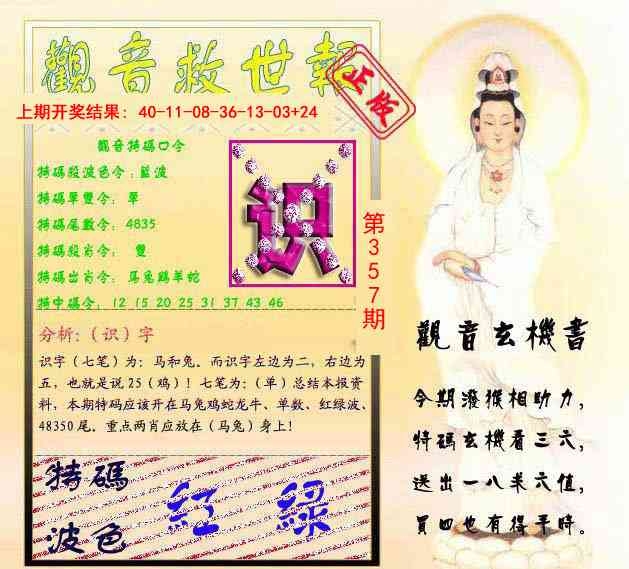 觀音救世報
正版
上期开奖结果：40-11-08-36-13-03+24
觀音特碼口令
特碼殺波色令：藍波
特碼單雙令：單
特碼尾數令：4835
特碼殺肖令： 雙
特碼出肖令：馬兔鷄羊蛇
特中碼令：12 15 20 25 31 37 43 46
识
第357期
分析:（识）字
识字（七笔）为：马和兔．而识字左边为二，右边为
五，也就是说 25（鸡）！七笔为：（单）总结本报资
料，本期特码应该开在马兔鸡蛇龙牛、单数、红绿波、
48350 尾．重点两肖应放在（马兔）身上！
特碼
波色
紅 綠
觀音玄機書
今期潑猴相助力，
特碼玄機看三六，
送出一八求六值，
買四也有得平時。